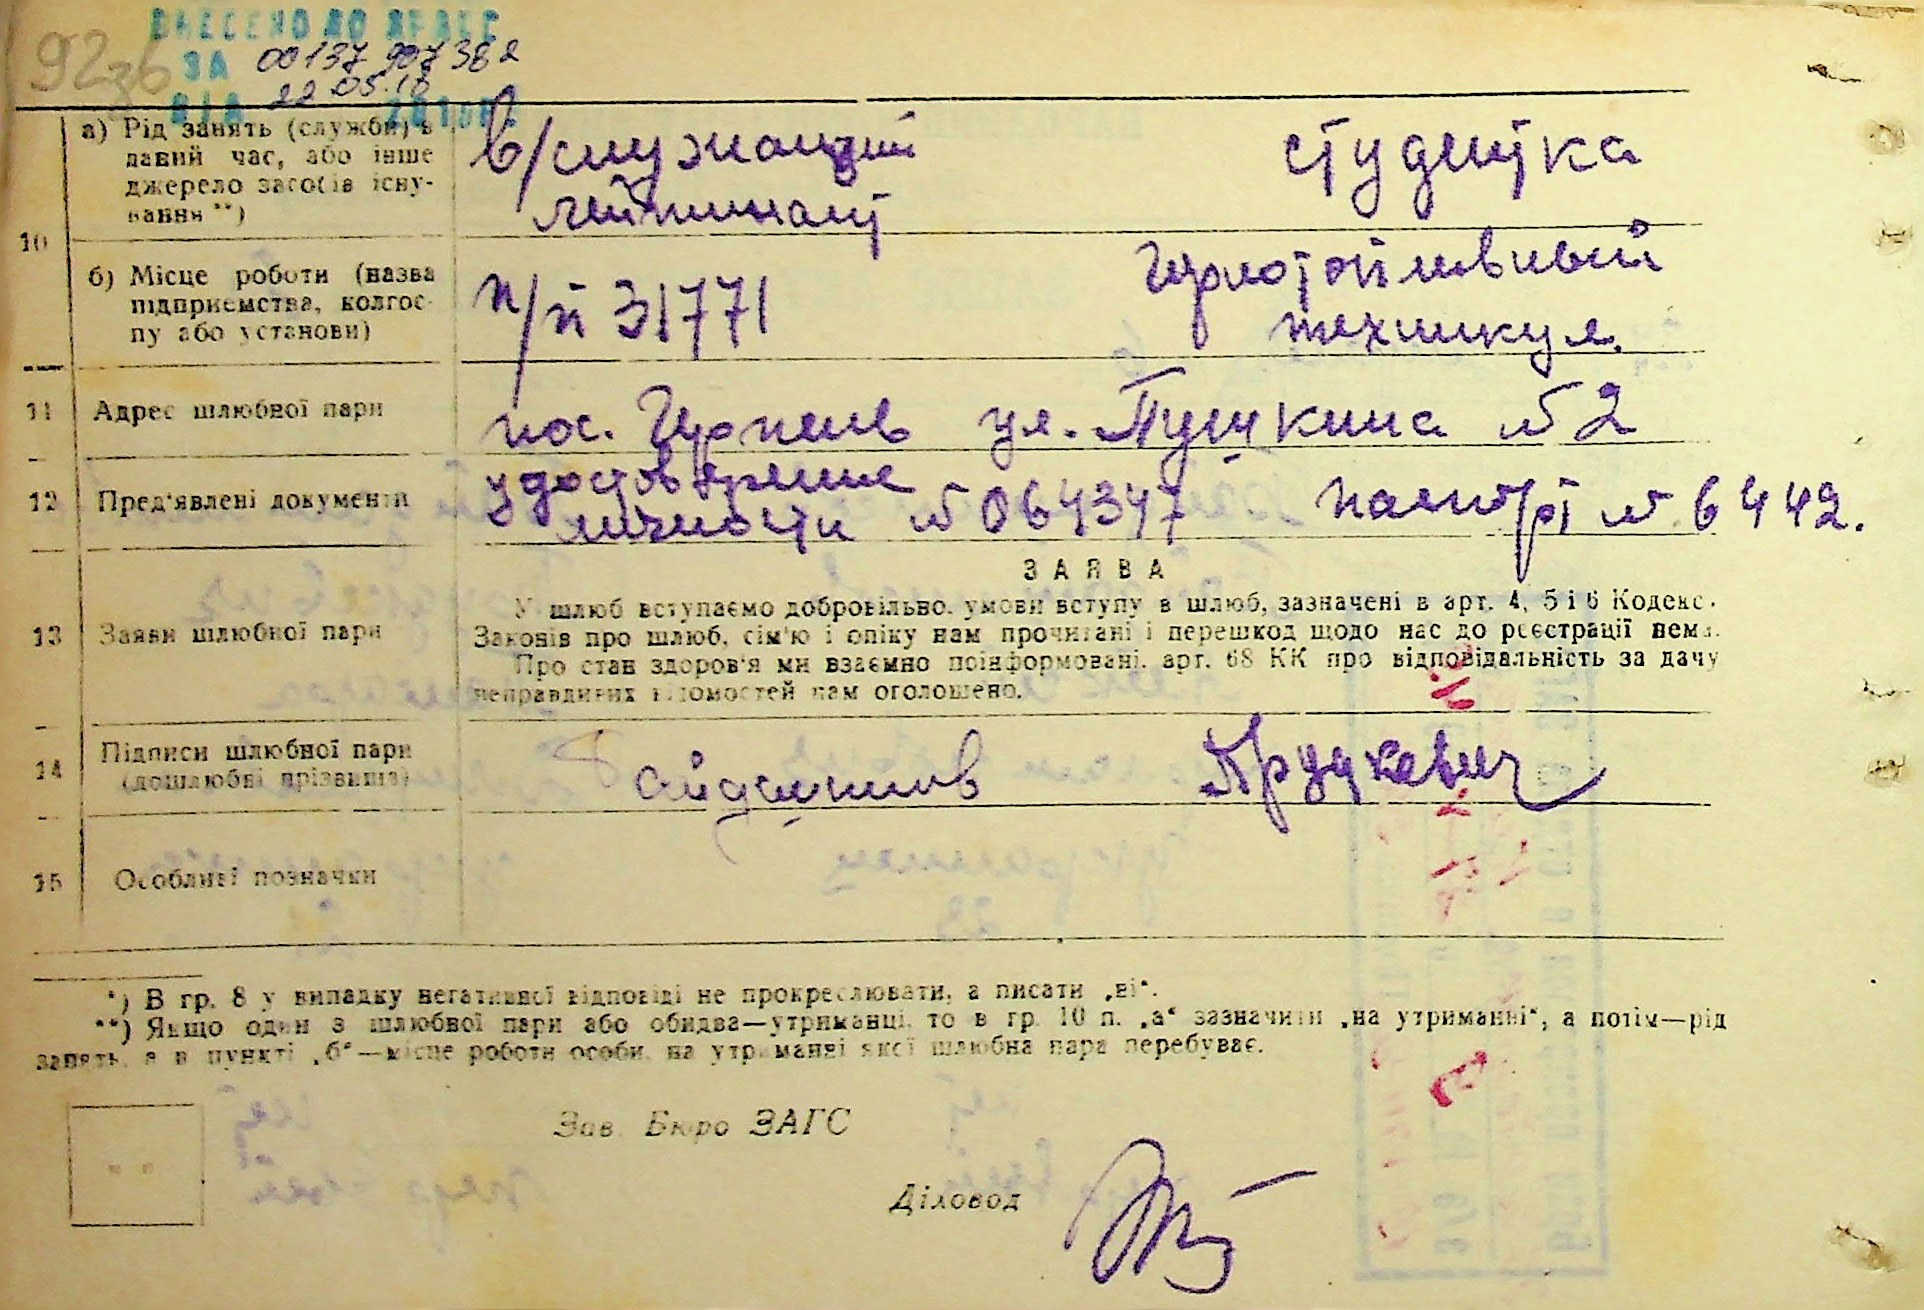 92зв
ВНЕСЕНО ДО ДРАЦС
ЗА 00137907382
22.05.18
10
а) Рід занять (служби) в
даний час, або інше
джерело засобів існу-
вання **)
в/служащий
лейтинант
студентка
б) Місце роботи (назва
підприємства, колгос-
пу або установи)
п/п 31771
техникум.
11 Адрес шлюбної пари
пос. Ирпень ул. Пушкина № 2
12 Пред'явлені документи
удостоверение
личности № 064347
паспорт № 6442.
13 Заяви шлюбної пари
ЗАЯВА
У шлюб вступаємо добровільно, умови вступу в шлюб, зазначені в арт. 4, 5 і 6 Кодекс.
Законів про шлюб, сім'ю і опіку нам прочитані і перешкод щодо нас до реєстрації нема.
Про стан здоров'я ми взаємно поінформовані, арт. 68 КК про відповідальність за дачу
неправдивих відомостей нам оголошено.
14 Підписи шлюбної пари
(дошлюбні прізвища)
15 Особливі позначки
*) В гр. 8 у випадку негативної відповіді не прокреслювати, а писати „ні“.
**) Якщо один з шлюбної пари або обидва—утриманці, то в гр. 10 п. „а“ зазначити „на утриманні“, а потім—рід
занять, а в пункті „б“—місце роботи особи, на утриманні якої шлюбна пара перебуває.
Зав. Бюро ЗАГС
Діловод